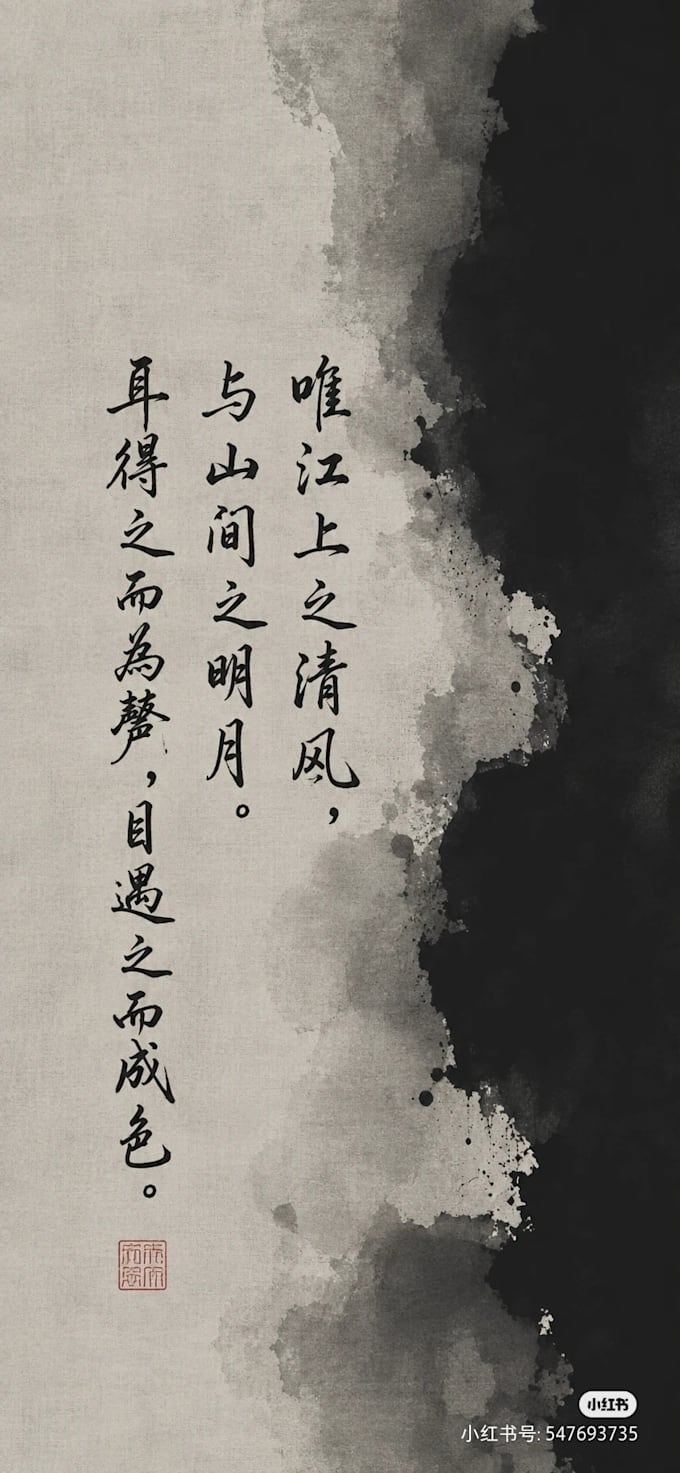 唯江上之清风，
与山间之明月。
耳得之而為聲，目遇之而成色。
小红书
小红书号: 547693735